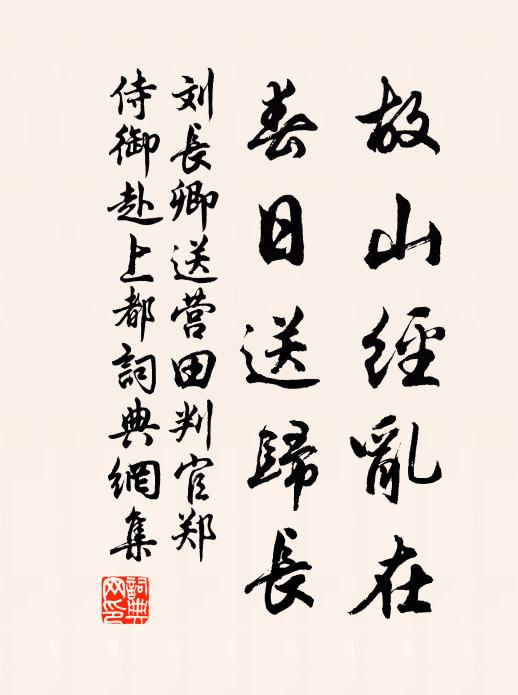 故山經亂在
春日送歸長
刘長卿送营田判官郑
侍御赴上都詞典網集
詞典网印